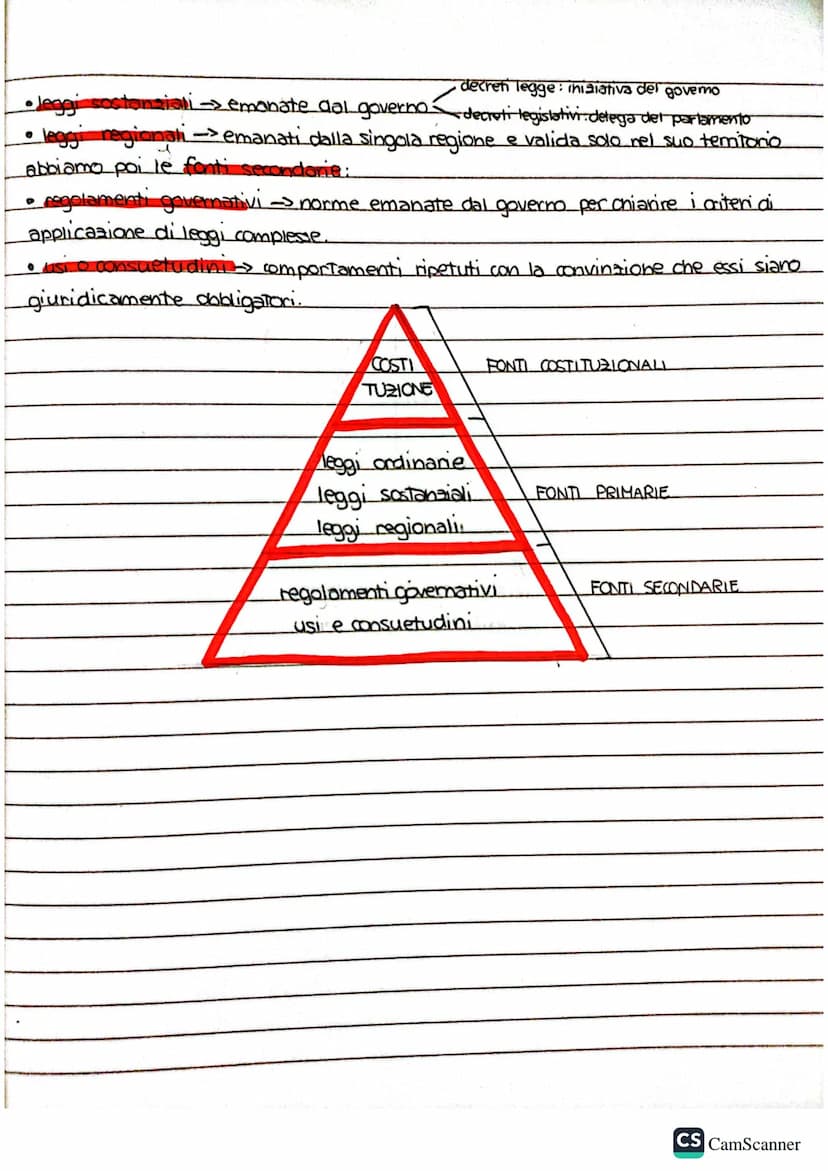 • leggi sostanziali → emanate dal governo
decreti legge: iniziativa del governo
decreti legislativi: delega del parlamento
• leggi regionali → emanati dalla singola regione e valida solo nel suo territorio
abbiamo poi le fonti secondarie:
• regolamenti governativi → norme emanate dal governo per chiarire i criteri di
applicazione di leggi complesse.
• usi o consuetudini → comportamenti ripetuti con la convinzione che essi siano
giuridicamente obbligatori.
COSTI
TUZIONE
FONTI COSTITUZIONALI
leggi ordinarie
leggi sostanziali
leggi regionali
FONTI PRIMARIE
regolamenti governativi
usi e consuetudini
FONTI SECONDARIE
CS CamScanner